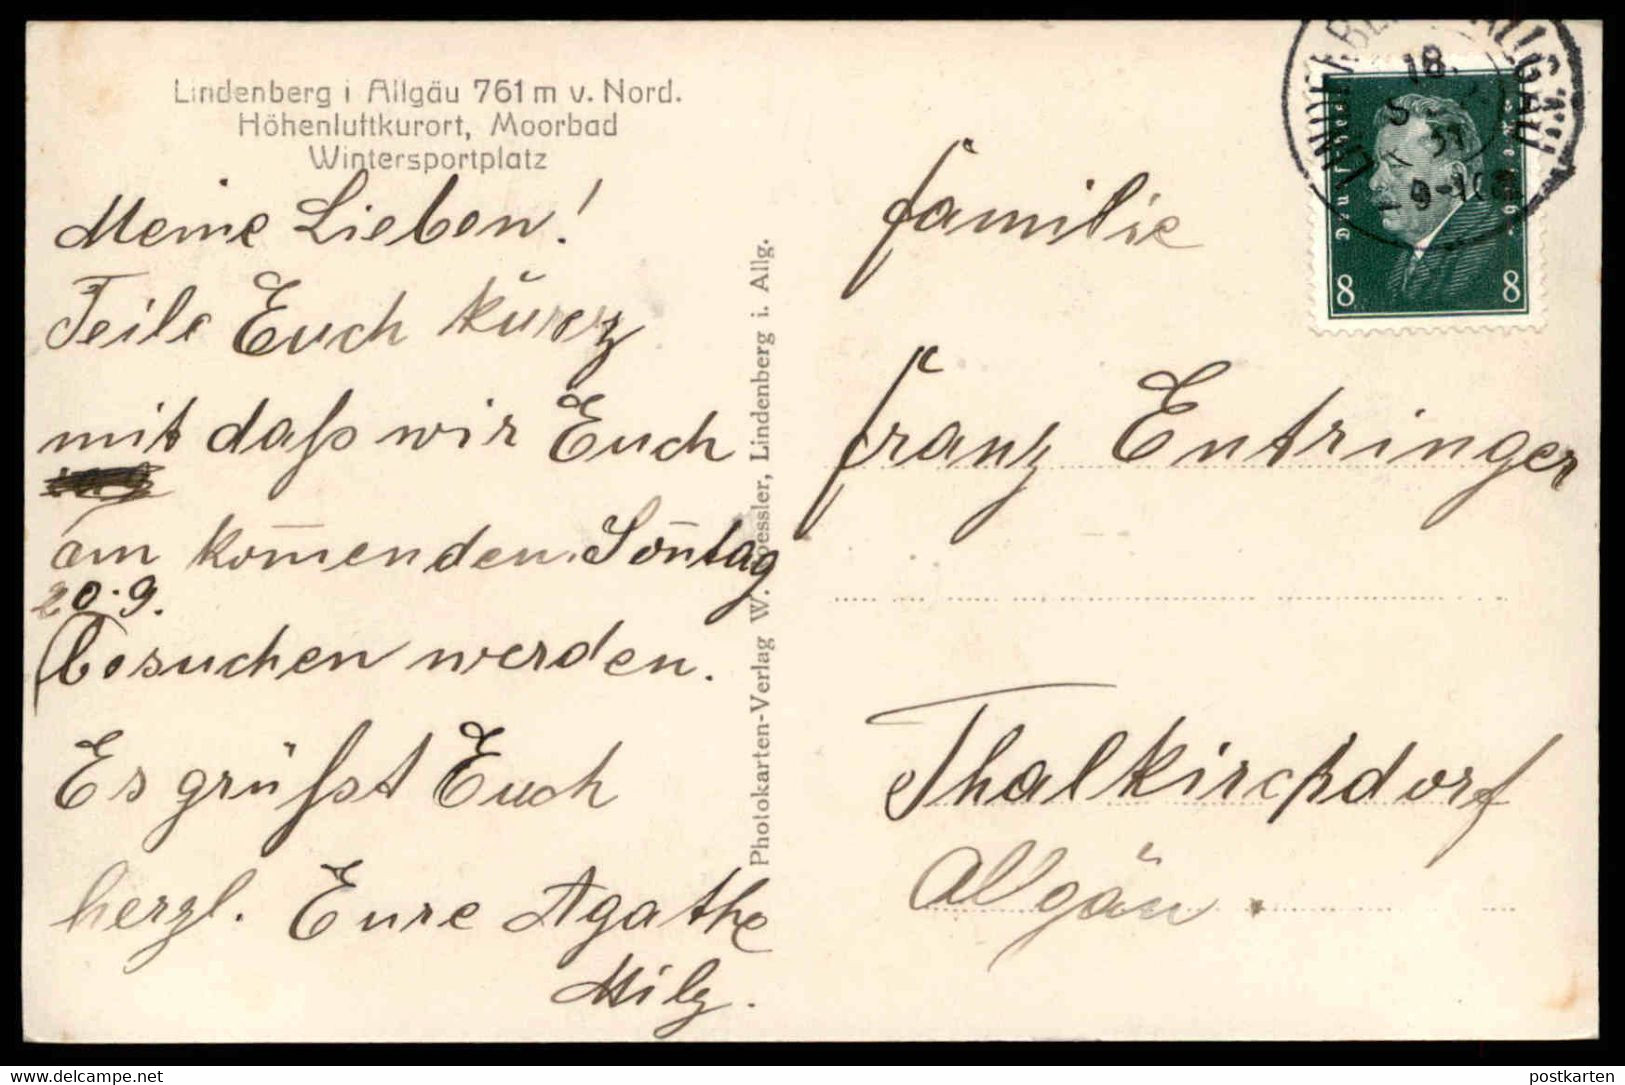 Lindenberg i Allgäu 761 m v. Nord.
Höhenluftkurort, Moorbad
Wintersportplatz
Meine Lieben!
Teile Euch kurz
mit daß wir Euch
am kom̅enden Son̅tag
20.9.
besuchen werden.
Es grüßt Euch
herzl. Eure Agathe
Milz.
Photokarten-Verlag W. Boessler, Lindenberg i. Allg.
Familie
Franz Entringer
Thalkirchdorf
Allgäu.
LINDENBERG (ALLGÄU)
18.
9-10
8 8
Deutsches Reich
delcampe.net
postkarten